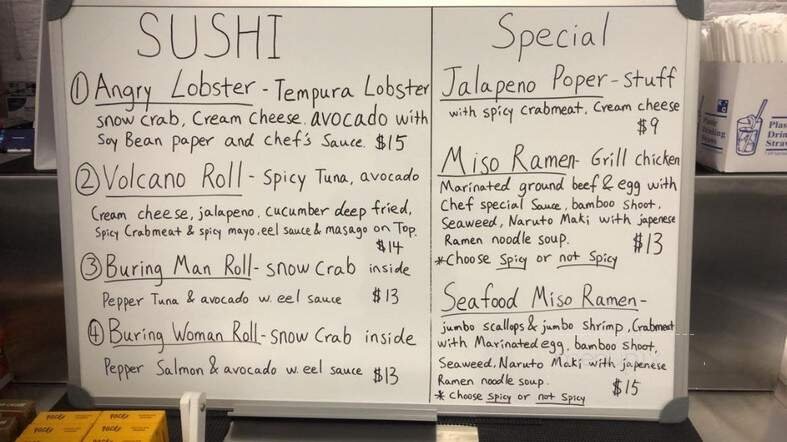 SUSHI
① Angry Lobster - Tempura Lobster
snow crab, Cream Cheese. avocado with
Soy Bean paper and chef's Sauce. $15
② Volcano Roll - Spicy Tuna, avocado
Cream cheese, jalapeno. cucumber deep fried,
Spicy Crabmeat & spicy mayo. eel sauce & masago on Top.
$14
③ Buring Man Roll - snow Crab inside
Pepper Tuna & avocado w. eel sauce $13
④ Buring Woman Roll - snow Crab inside
Pepper Salmon & avocado w. eel sauce $13
Special
Jalapeno Poper - stuff
with spicy crabmeat, Cream cheese
$9
Miso Ramen - Grill chicken
Marinated ground beef & egg with
Chef special Sauce, bamboo shoot,
Seaweed, Naruto Maki with japenese
Ramen noodle soup. $13
*Choose Spicy or not Spicy
Seafood Miso Ramen -
jumbo scallops & jumbo shrimp, Crabmeat
with Marinated egg, bamboo shoot,
Seaweed, Naruto Maki with japenese
Ramen noodle soup. $15
* choose spicy or not spicy
Plastic
Drinking
Straws
Pocky